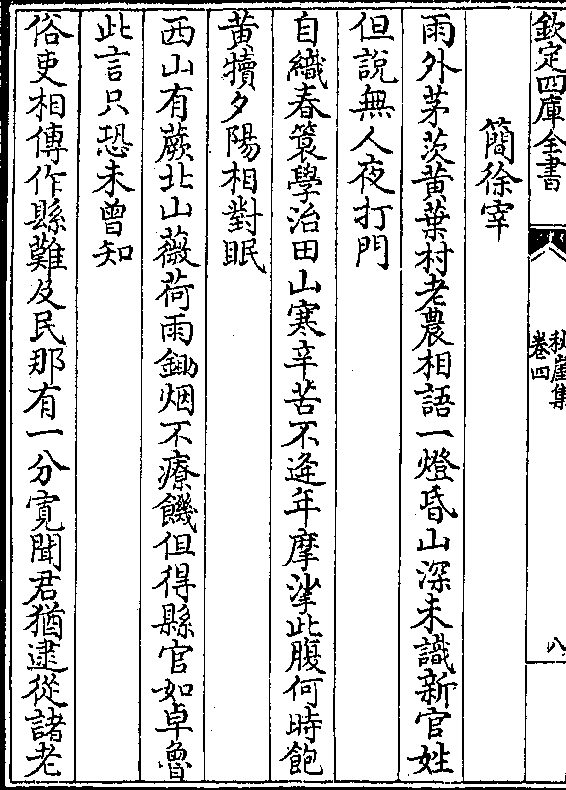 欽定四庫全書
秋崖集
卷四
八
簡徐宰
雨外茅茨黄葉村老農相語一燈昏山深未識新官姓
但說無人夜打門
自織春簑學治田山寒辛苦不逢年摩挲此腹何時飽
黄犢夕陽相對眠
西山有蕨北山薇荷雨鋤烟不療饑但得縣官如卓魯
此言只恐未曾知
俗吏相傳作縣難及民那有一分寛聞君猶逮從諸老